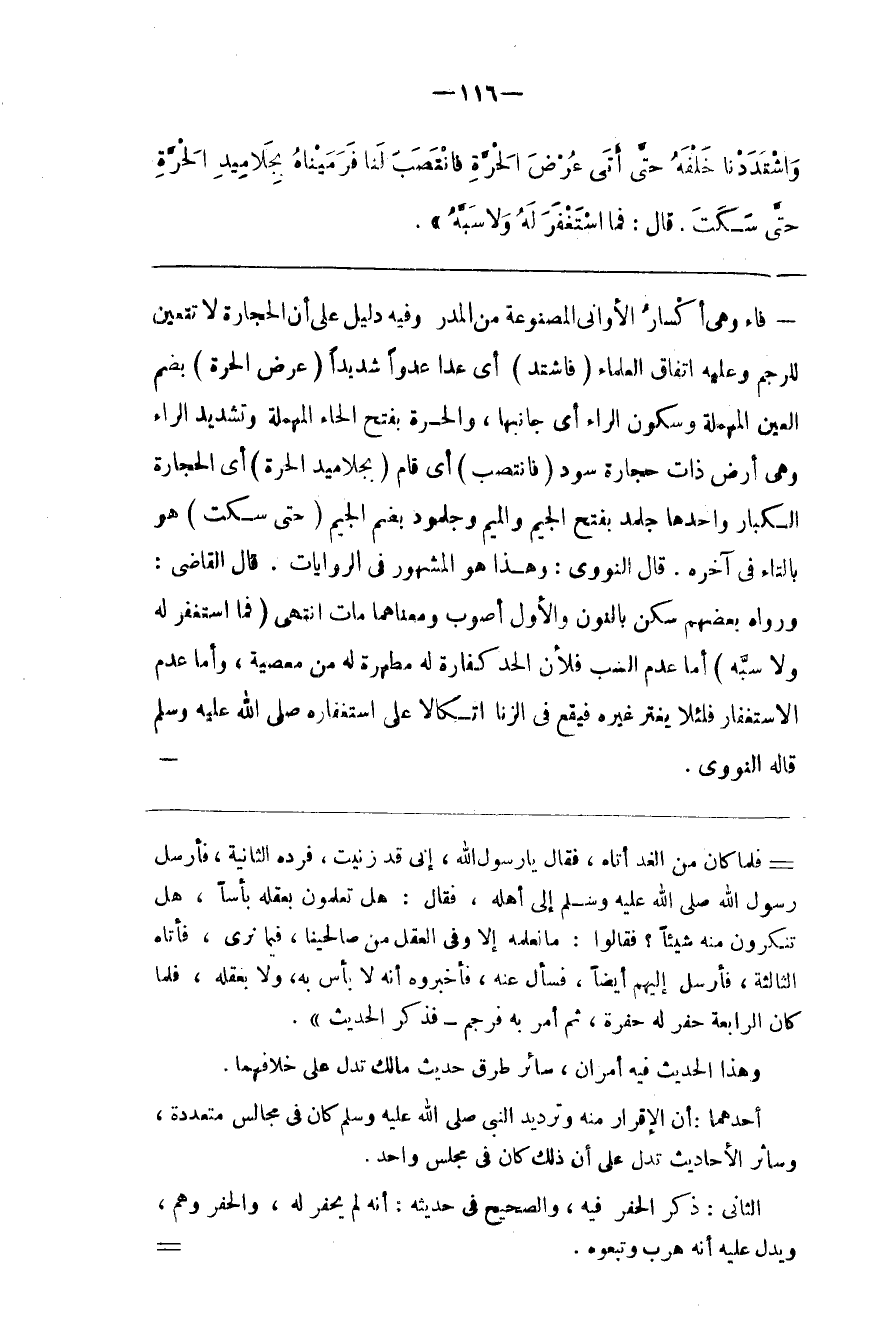 —١١٦—
وَاشْتَدَدْنا خَلْفَهُ حتَّى أَتَى عُرْضَ الحْرَّةِ فانْتَصَبَ لَنا فَرَمَيْناهُ بِجَلَامِيدِ الحْرَّةِ
حتَّى سَكَتَ . قال : فما اسْتَغْفَرَ لَهُ وَلا سَبَّهُ » .
— فاء وهى أكْسارُ الأوانى المصنوعة من المدر وفيه دليل على أن الحجارة لا تتعين
للرجم وعليه اتفاق العلماء ( فاشتد ) أى عدا عدواً شديداً ( عرض الحرة ) بضم
العين المهملة وسكون الراء أى جانبها ، والحرة بفتح الحاء المهملة وتشديد الراء
وهى أرض ذات حجارة سود ( فانتصب ) أى قام ( بجلاميد الحرة ) أى الحجارة
الكبار واحدها جلمد بفتح الجيم والميم وجلمود بضم الجيم ( حتى سكت ) هو
بالتاء فى آخره . قال النووى : وهذا هو المشهور فى الروايات . قال القاضى :
ورواه بعضهم سكن بالنون والأول أصوب ومعناهما مات انتهى ( فما استغفر له
ولا سبَّه ) أما عدم السب فلأن الحد كفارة له مطهرة له من معصية ، وأما عدم
الاستغفار فلئلا يغتر غيره فيقع فى الزنا اتكالا على استغفاره صلى الله عليه وسلم
قاله النووى . —
= فلما كان من الغد أتاه ، فقال يارسول الله ، إنى قد زنيت ، فرده الثانية ، فأرسل
رسول الله صلى الله عليه وسلم إلى أهله ، فقال : هل تعلمون بعقله بأساً ، هل
تنكرون منه شيئاً ؟ فقالوا : مانعلمه إلا وفى العقل من صالحينا ، فيما نرى ، فأتاه
الثالثة ، فأرسل إليهم أيضاً ، فسأل عنه ، فأخبروه أنه لا بأس به، ولا بعقله ، فلما
كان الرابعة حفر له حفرة ، ثم أمر به فرجم – فذكر الحديث » .
وهذا الحديث فيه أمران ، سائر طرق حديث مالك تدل على خلافهما .
أحدهما : أن الإقرار منه وترديد النبى صلى الله عليه وسلم كان فى مجالس متعددة ،
وسائر الأحاديث تدل على أن ذلك كان فى مجلس واحد .
الثانى : ذكر الحفر فيه ، والصحيح فى حديثه : أنه لم يحفر له ، والحفر وهم ،
ويدل عليه أنه هرب وتبعوه . =